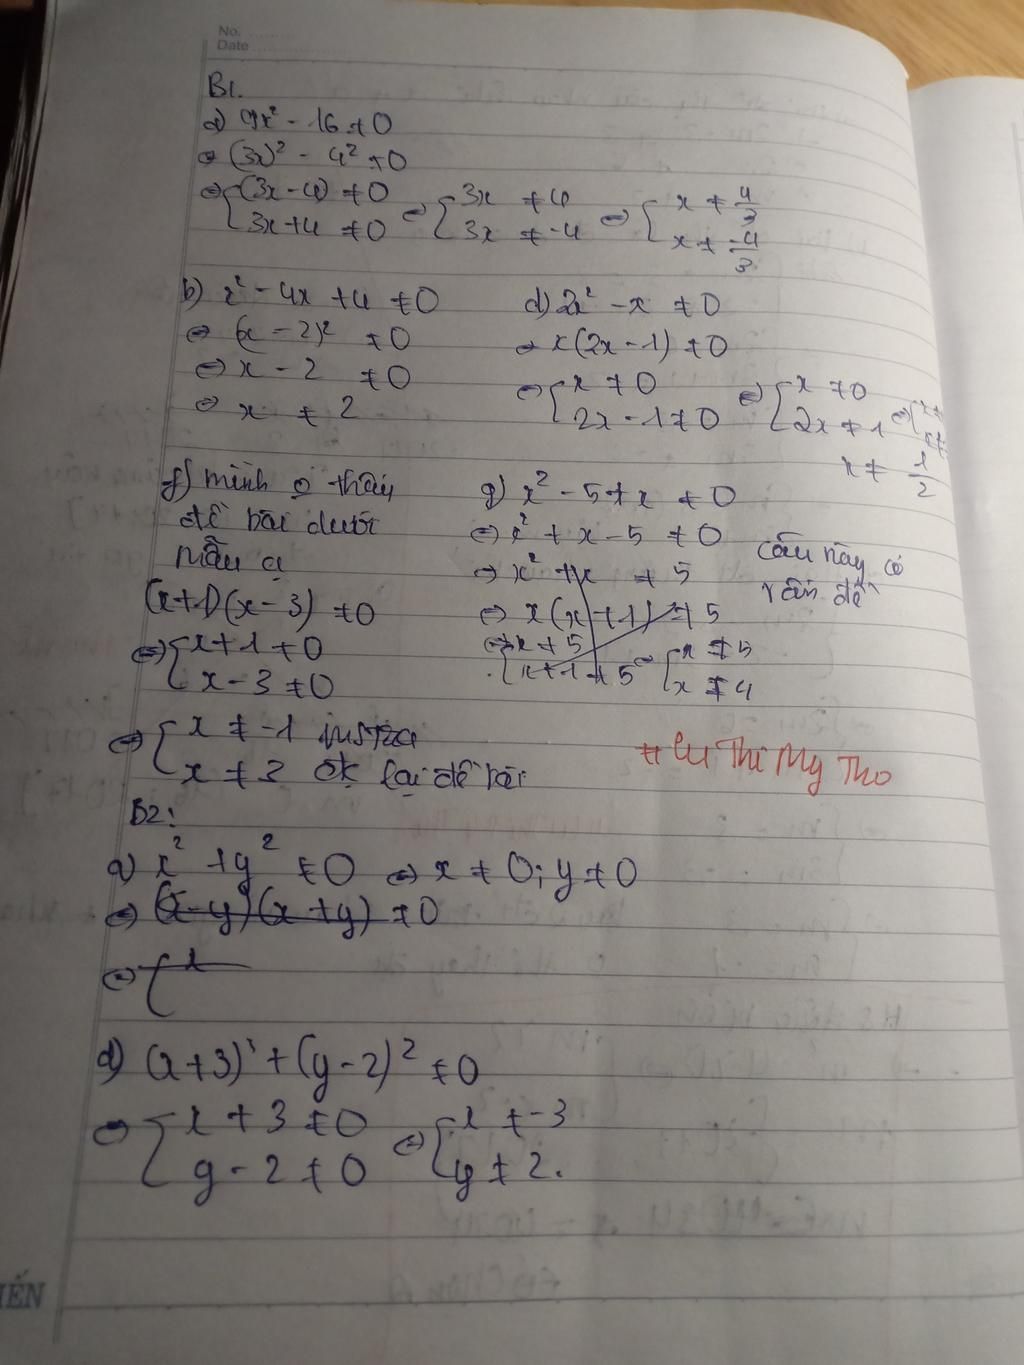 No. ........
Date ................
B1.
a) 9x² - 16 ≠ 0
⇔ (3x)² - 4² ≠ 0
⇔ { (3x-4) ≠ 0 ⇔ { 3x ≠ 4 ⇔ { x ≠ 4/3
3x+4 ≠ 0 3x ≠ -4 x ≠ -4/3
b) x² - 4x + 4 ≠ 0
⇔ (x - 2)² ≠ 0
⇔ x - 2 ≠ 0
⇔ x ≠ 2
d) 2x² - x ≠ 0
⇔ x(2x - 1) ≠ 0
⇔ { x ≠ 0 ⇔ { x ≠ 0 ⇔ {
2x - 1 ≠ 0 2x ≠ 1
x ≠ 1/2
f) mình o thấy
đề bài dưới
mẫu ạ
(x+1)(x-3) ≠ 0
⇔ { x+1 ≠ 0
x-3 ≠ 0
⇔ { x ≠ -1
x ≠ 3 lại đề bài
g) x² - 5 + x ≠ 0
⇔ x² + x - 5 ≠ 0
⇔ x² + x ≠ 5
⇔ x(x+1) ≠ 5
⇔ { x ≠ 5 ⇔ { x ≠ 5
x+1 ≠ 5 x ≠ 4
câu này có
vấn đề
# Lu Thi My Tho
B2:
a) x² + y² ≠ 0 ⇔ x ≠ 0; y ≠ 0
⇔ (x-y)(x+y) ≠ 0
⇔ {
d) (x+3)² + (y-2)² ≠ 0
⇔ { x + 3 ≠ 0 ⇔ { x ≠ -3
y - 2 ≠ 0 y ≠ 2.
IẾN